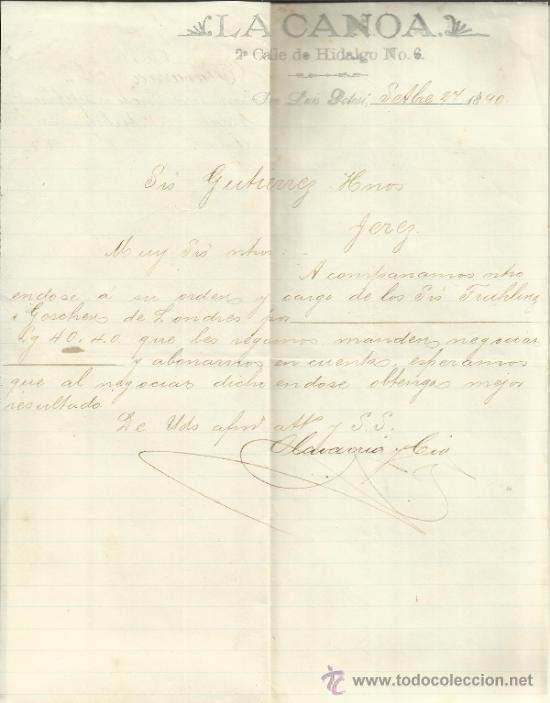 LA CANOA.
2ª Calle de Hidalgo No. 6.
San Luis Potosi, Setbre 27 1890.
Srs Gutierrez Hnos
Jerez.
Muy Srs ntros:
Acompañamos ntro
endose á su orden y cargo de los Srs Fruhling
& Goschen de Londres por
£ 40.4.0. que les rogamos manden negociar
y abonarnos en cuenta, esperamos
que al negociar dicho endose obtenga mejor
resultado.
De Uds afmo att y S.S.
Olavarria y Cia
todocoleccion
www.todocoleccion.net